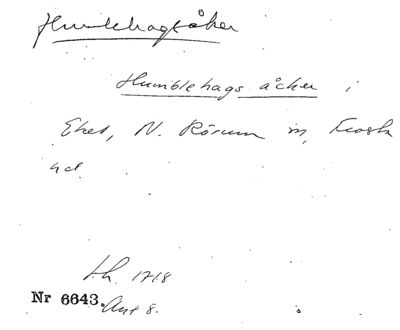 Humblehagsåker
Humblehags åcker i
Eket, N. Rörum sn, Frosta
hd
l.h. 1718
Nr 6643. Ant 8.